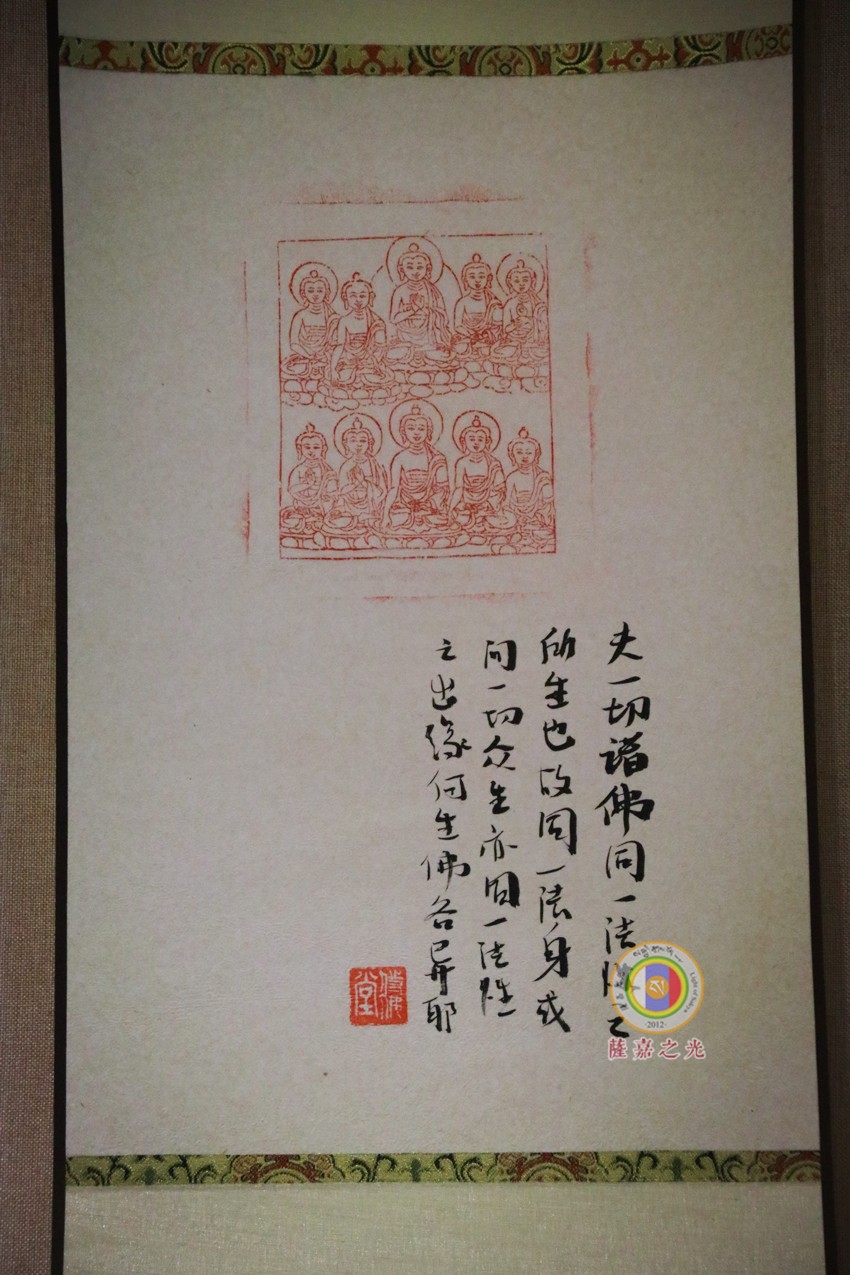 夫一切諸佛同一法性之
所生也故同一法身或
问一切众生亦同一法性
之出缘何生佛各异耶
佛堂
Light of Sakya
·2012·
薩嘉之光